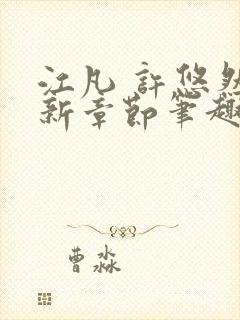 江凡 許悠然
新章節筆趣
曹淼